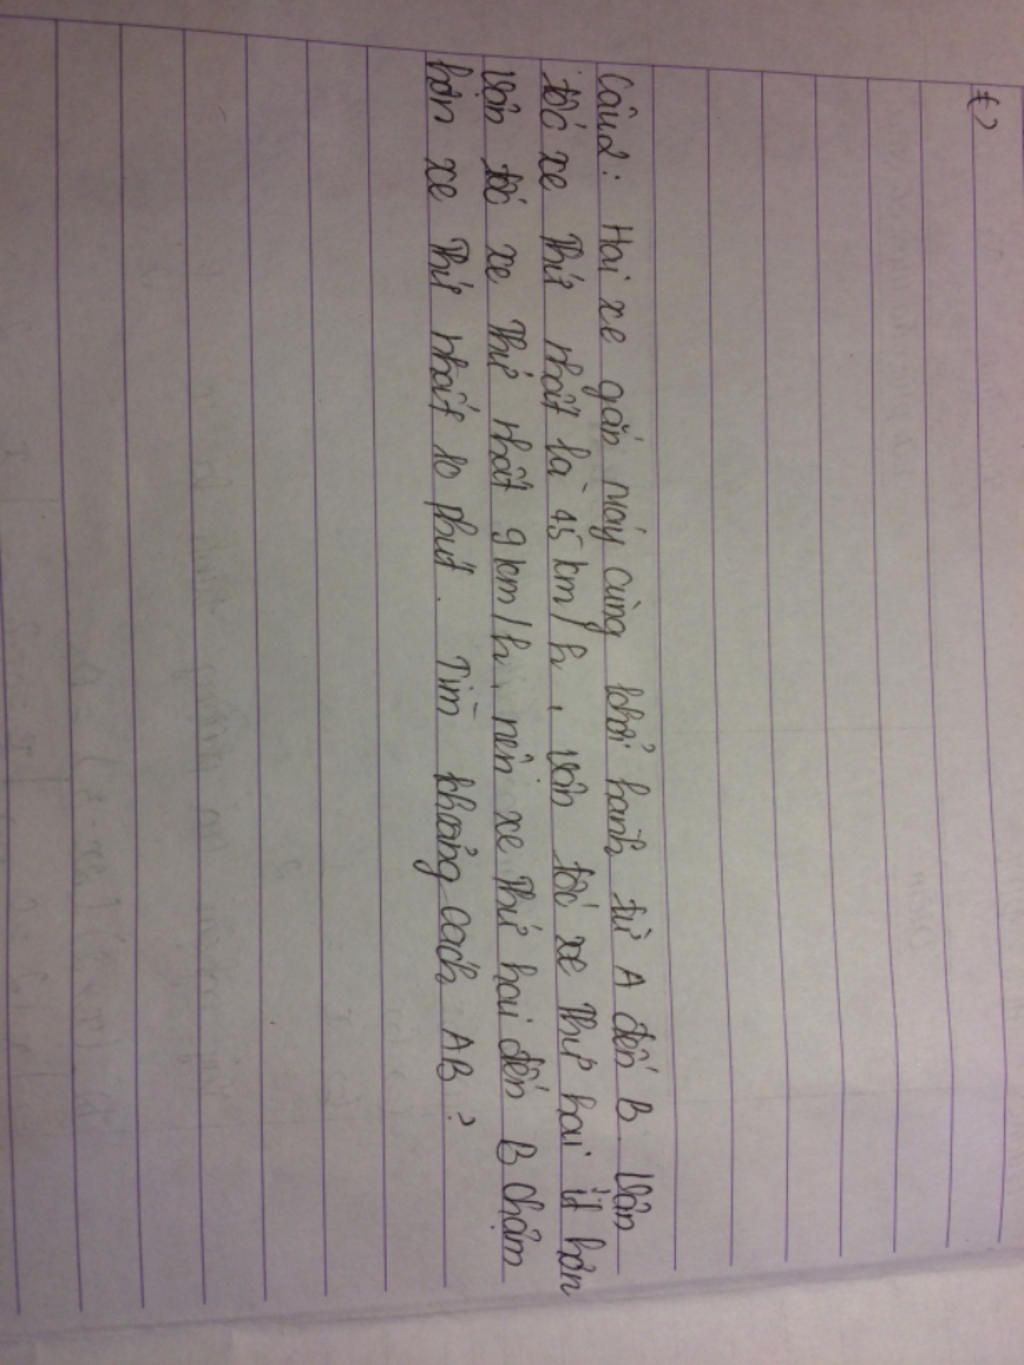 Câu 2: Hai xe gắn máy cùng khởi hành từ A đến B. Vận
tốc xe thứ nhất là 45 km/h, vận tốc xe thứ hai ít hơn
vận tốc xe thứ nhất 9 km/h, nên xe thứ hai đến B chậm
hơn xe thứ nhất 10 phút. Tìm khoảng cách AB?